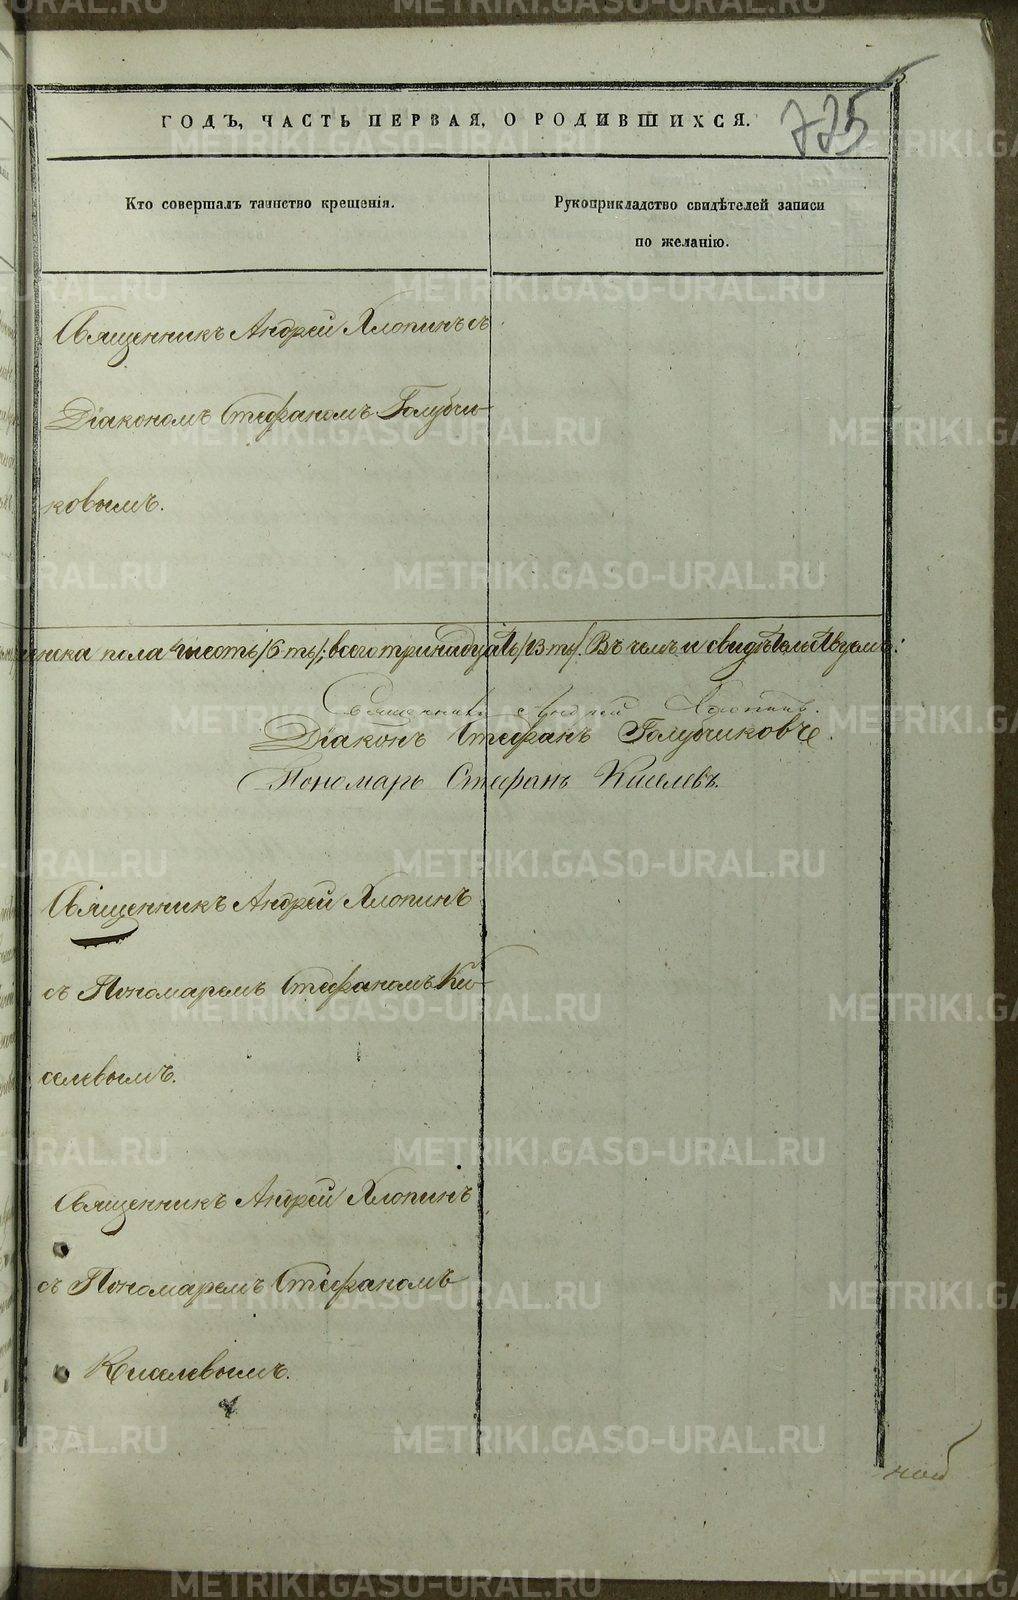 775
ГОДЪ, ЧАСТЬ ПЕРВАЯ, О РОДИВШИХСЯ.
Кто совершалъ таинство крещенія.
Рукоприкладство свидѣтелей записи
по желанію.
Священникъ Андрей Хлопинъ съ
Діакономъ Стефаномъ Голубчи-
ковымъ.
женска пола шесть /6ть/; всего тринадцать /13ть/. Въ чемъ и свидѣтельствуемъ:
Священникъ Андрей Хлопинъ.
Діаконъ Стефанъ Голубчиковъ.
Пономарь Стефанъ Киселевъ.
Священникъ Андрей Хлопинъ
съ Пономаремъ Стефаномъ Ки-
селевымъ.
Священникъ Андрей Хлопинъ
съ Пономаремъ Стефаномъ
Киселевымъ.
METRIKI.GASO-URAL.RU